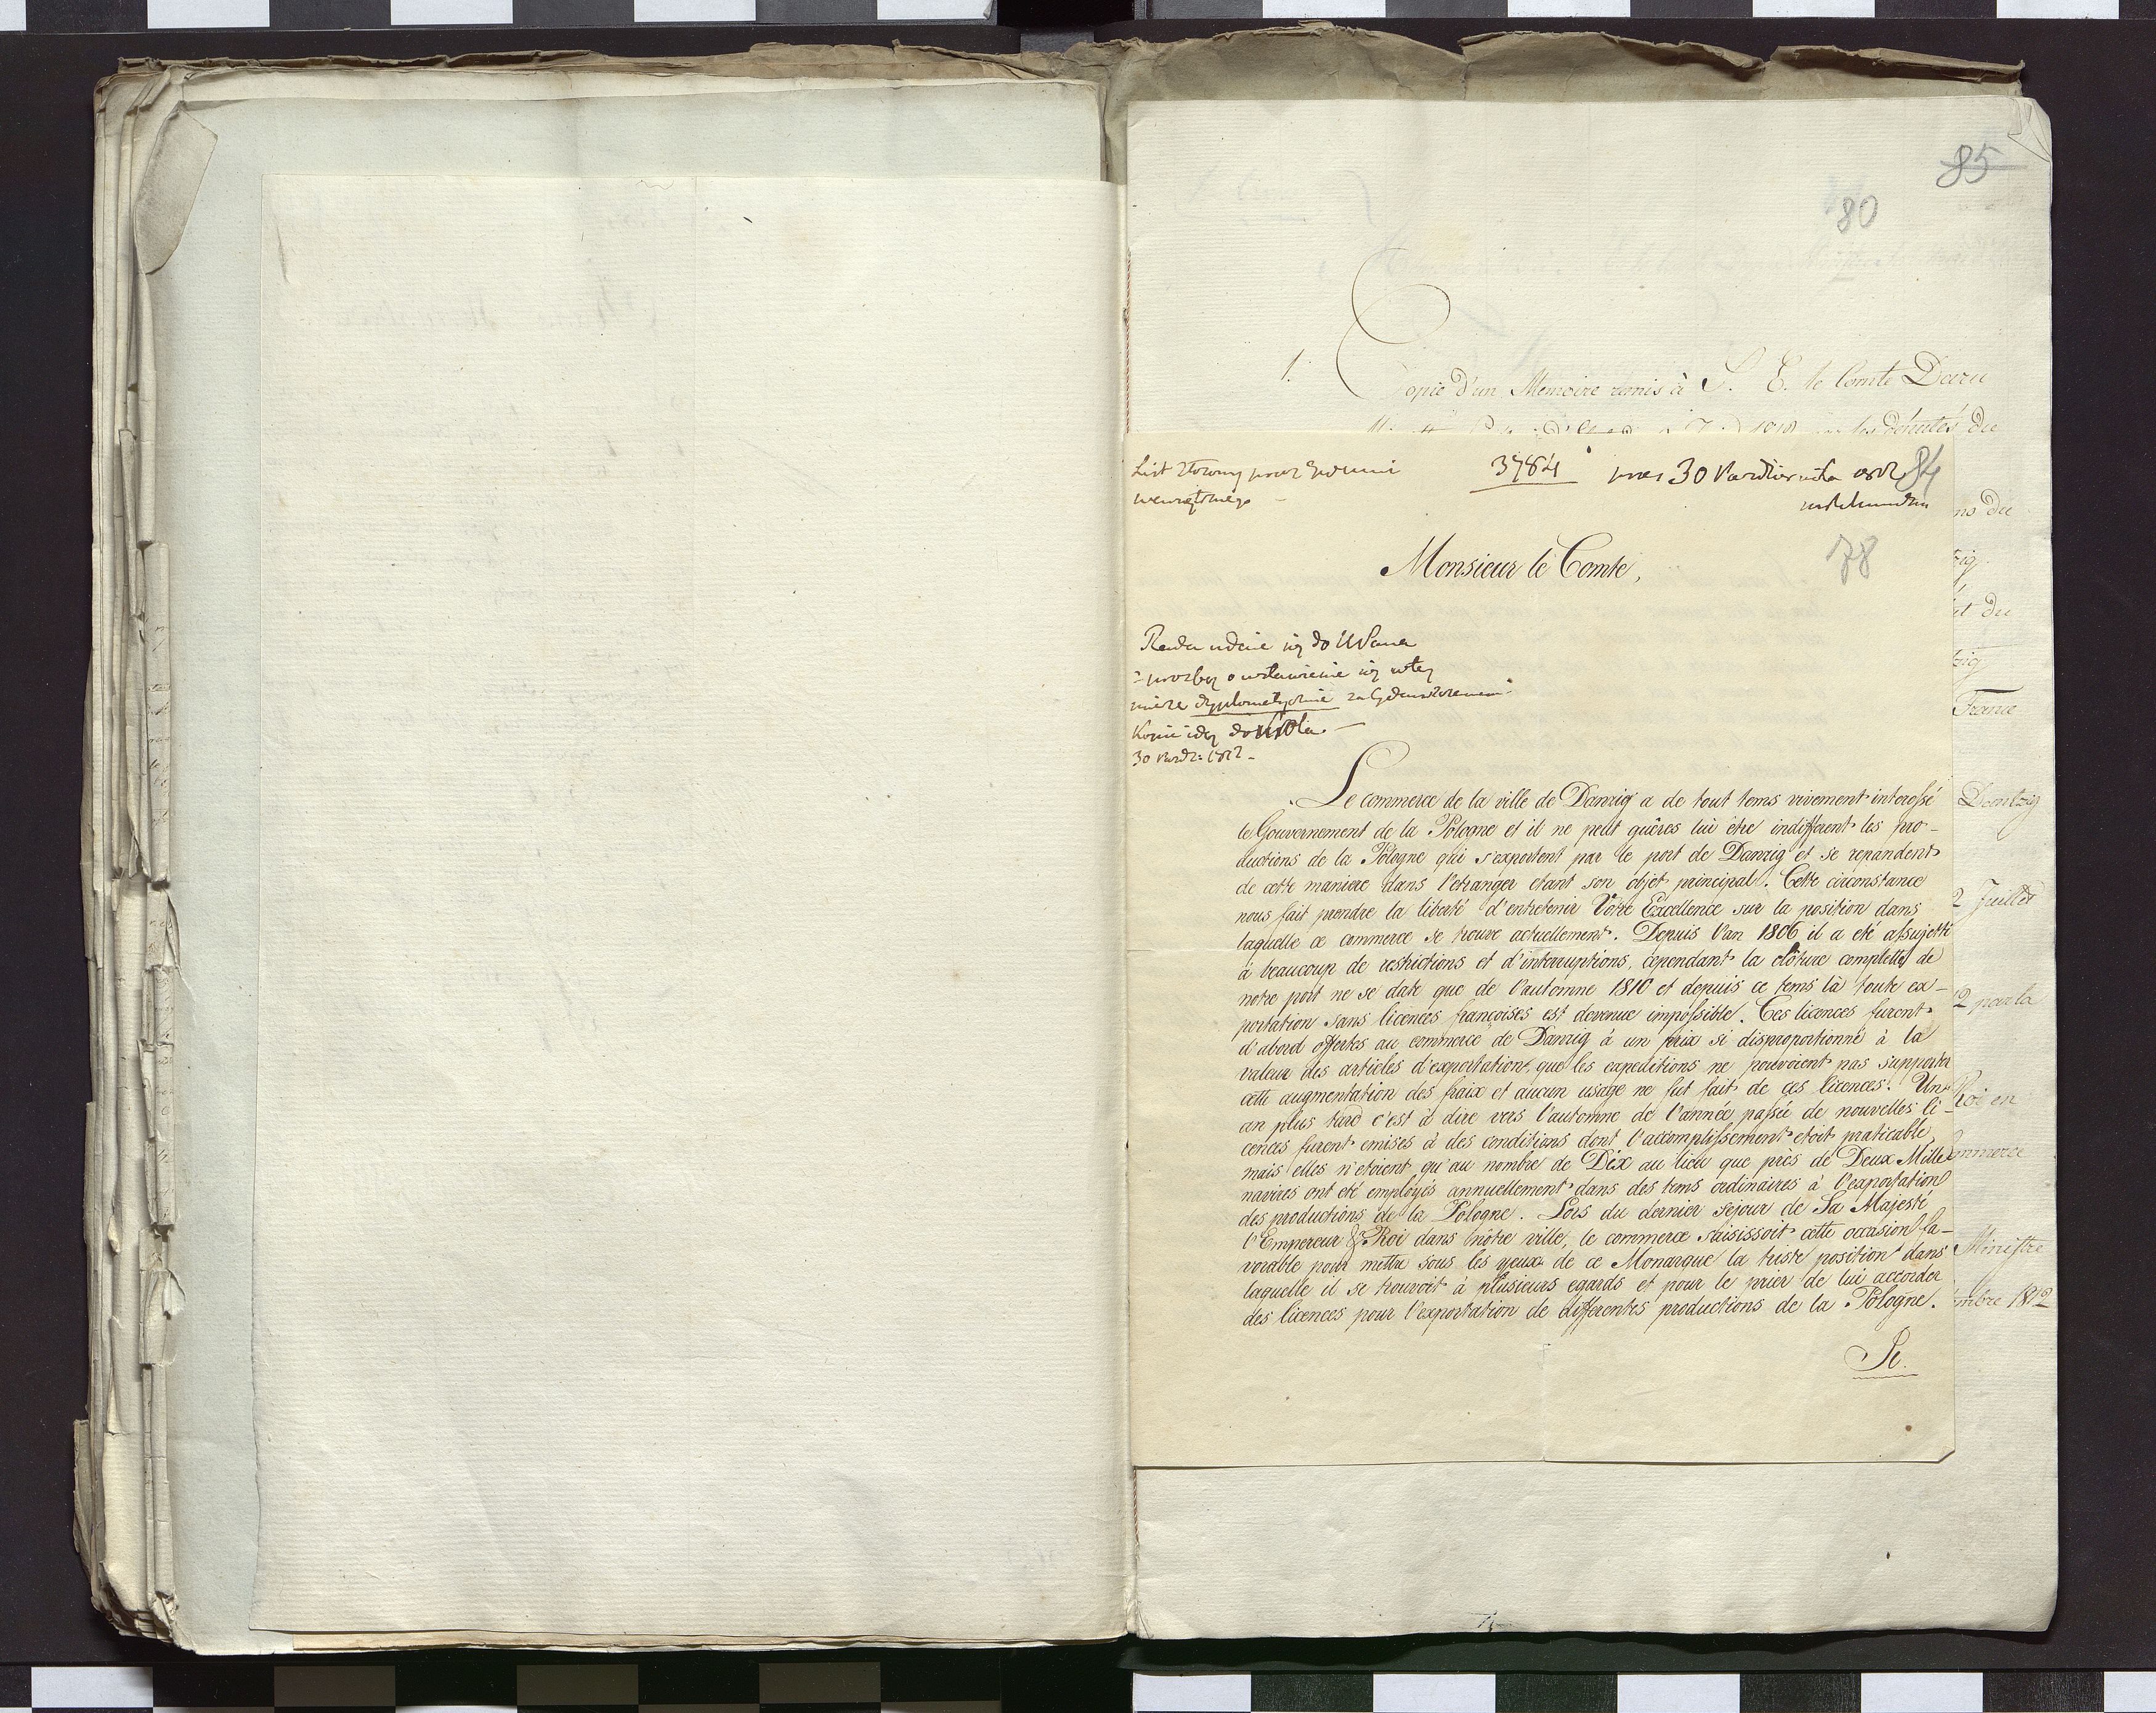 85
80
1. Copie d'un Memoire remis à S. E. le Comte Daru
les députés du
3784 30 Października 84
78
Monsieur le Comte,
Rada udaie się do
o wstawienie się w tey
mierze dyplomatycznie
30 Paźdz: 1812 -
Le commerce de la ville de Danzig a de tout tems vivement interessé
le Gouvernement de la Pologne et il ne peut guêres lui être indifferent les pro-
ductions de la Pologne qui s'exportent par le port de Danzig et se repandent
de cette maniere dans l'etranger etant son objet principal. Cette circonstance
nous fait prendre la liberté d'entretenir Votre Excellence sur la position dans
laquelle ce commerce se trouve actuellement. Depuis l'an 1806 il a eté assujetti
à beaucoup de restrictions et d'interruptions, cependant la clôture complette de
notre port ne se date que de l'automne 1810 et depuis ce tems là toute ex-
portation sans licences françoises est devenue impossible. Ces licences furent
d'abord offertes au commerce de Danzig à un prix si disproportionné à la
valeur des articles d'exportation, que les expeditions ne pouvoient pas supporter
cette augmentation des fraix et aucun usage ne fut fait de ces licences. Un
an plus tard c'est à dire vers l'automne de l'année passée de nouvelles li-
cences furent emises à des conditions dont l'accomplissement etoit praticable,
mais elles n'etoient qu'au nombre de Dix au lieu que près de Deux Mille
navires ont eté employés annuellement dans des tems ordinaires à l'exportation
des productions de la Pologne. Lors du dernier sejour de Sa Majesté
l'Empereur & Roi dans nôtre ville, le commerce saisissoit cette occasion fa-
vorable pour mettre sous les yeux de ce Monarque la triste position dans
laquelle il se trouvoit à plusieurs egards et pour le prier de lui accorder
des licences pour l'exportation de differentes productions de la Pologne.
Se.
ns du
zig
it du
zig
France
Dantzig
2 Juillet
12 par la
Roi en
ommerce
Ministre
embre 1812